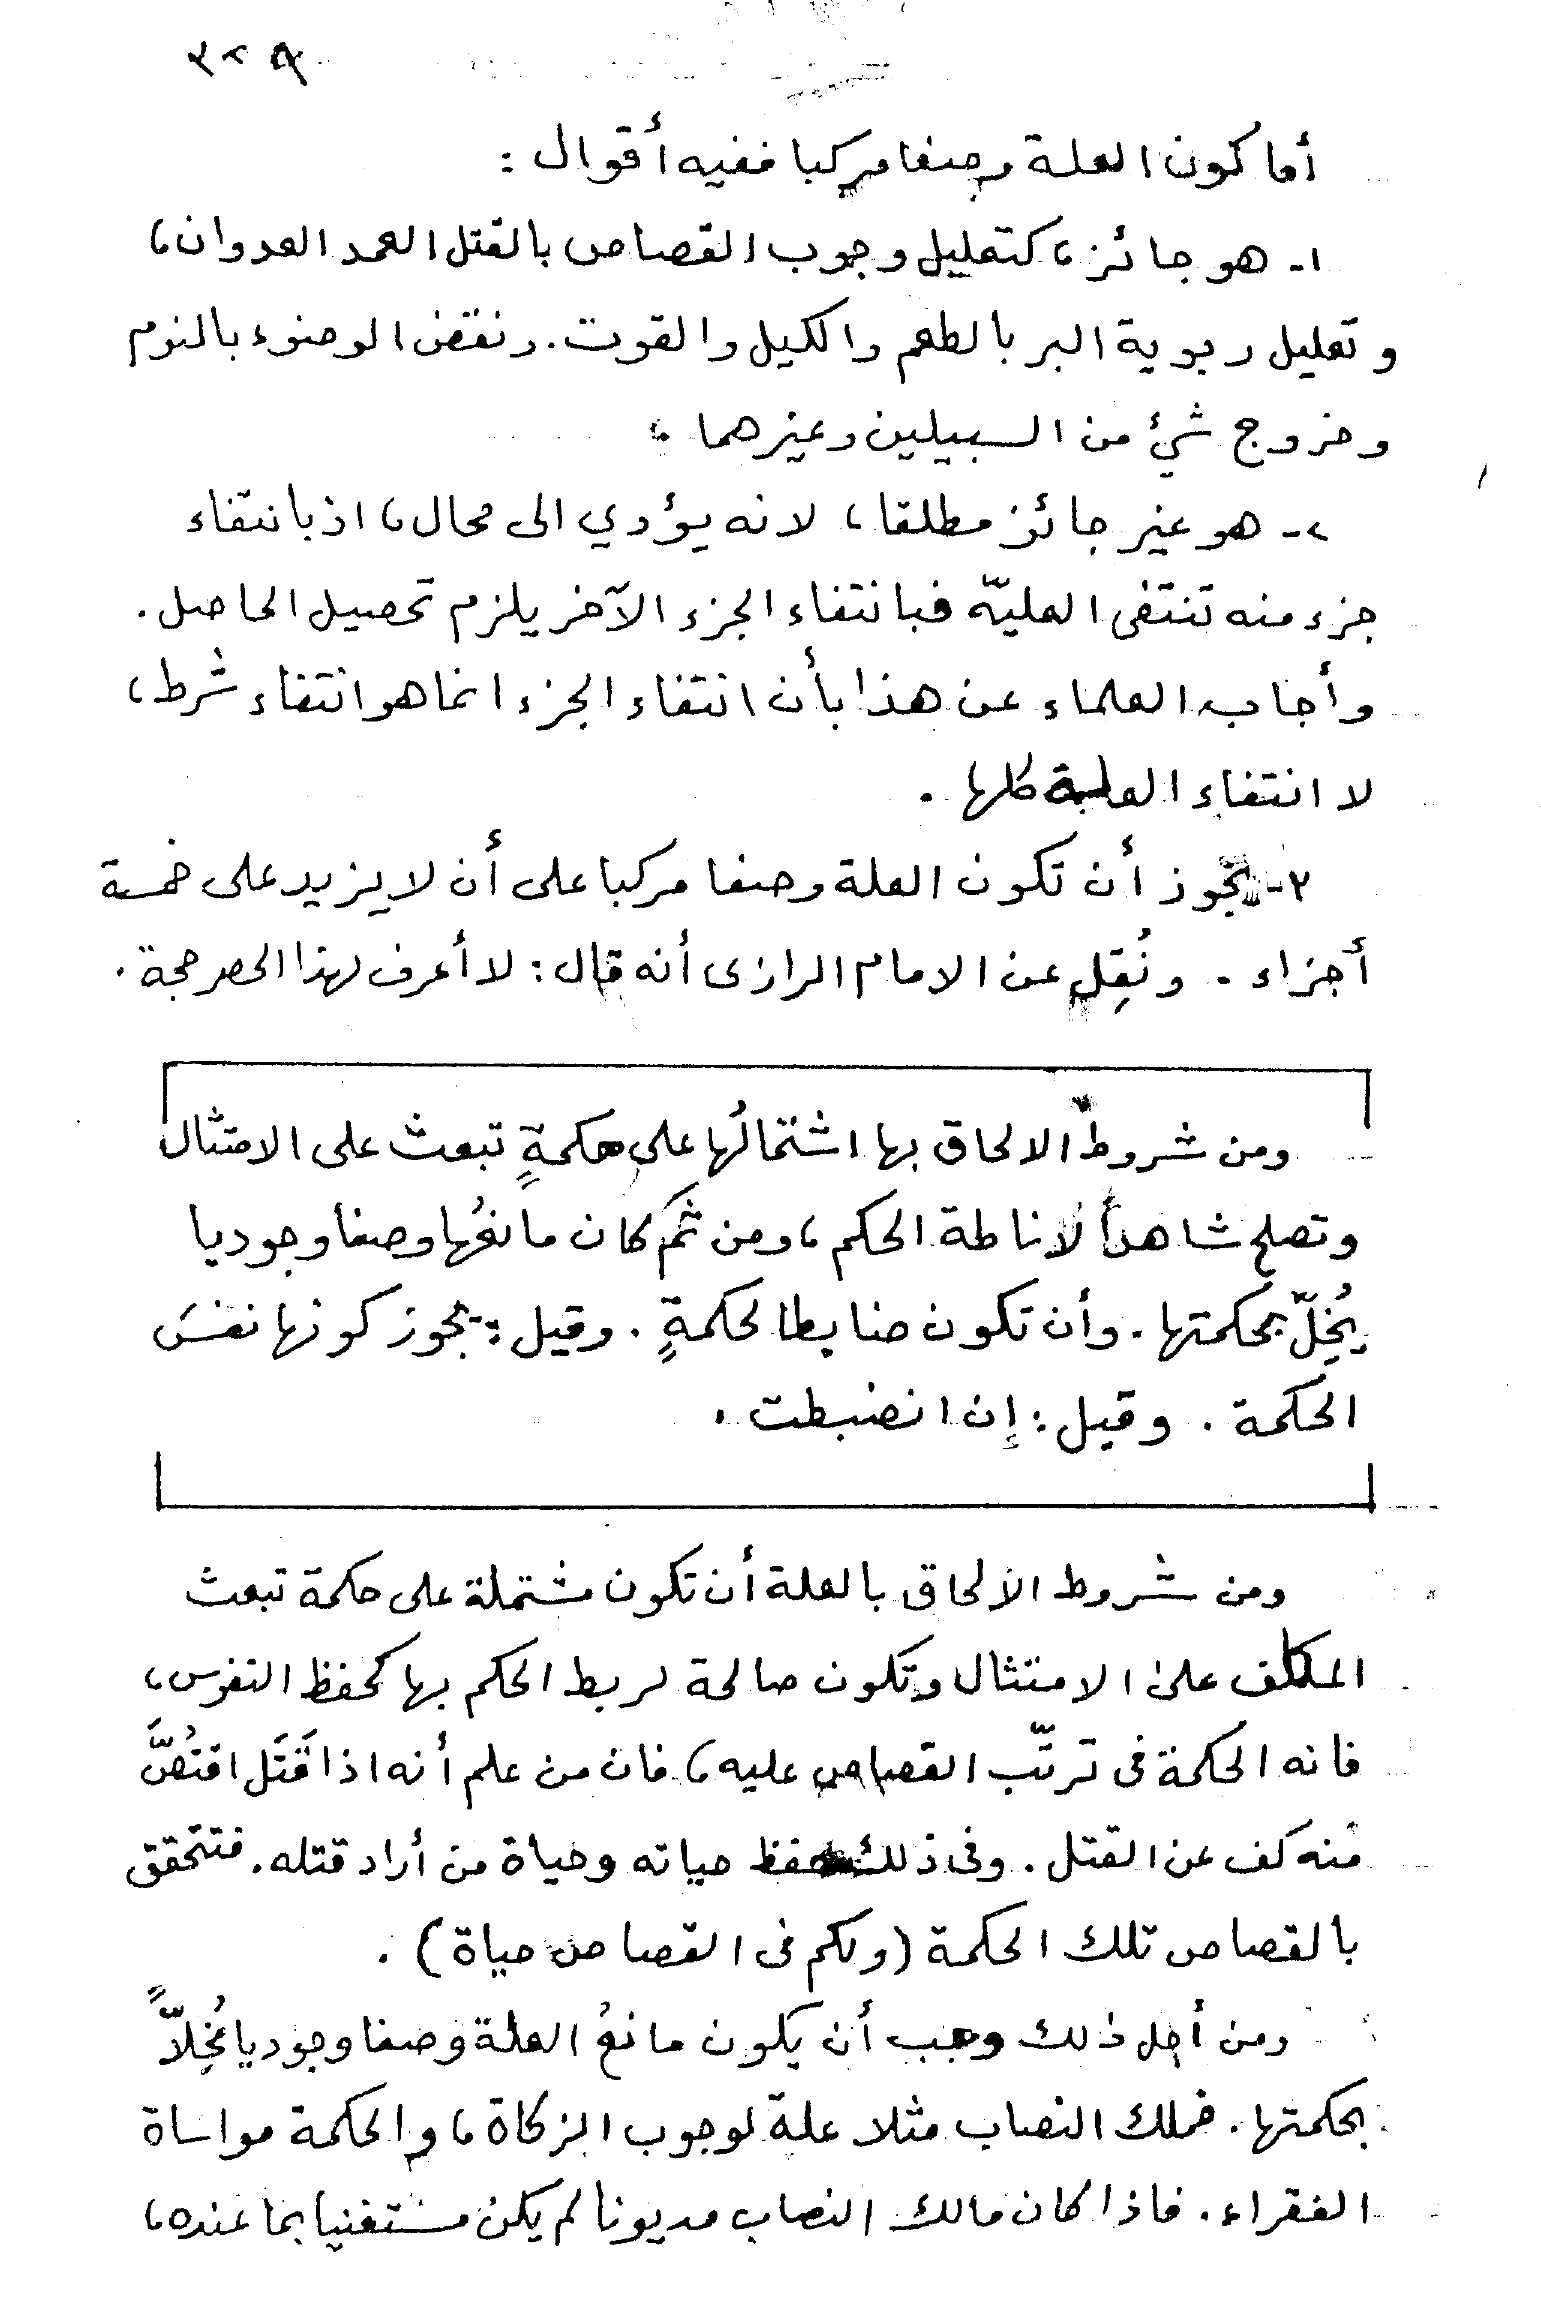 ٣٢٩
أما كون العلة وصفا مركبا ففيه أقوال :
١- هو جائز، كتعليل وجوب القصاص بالقتل العمد العدوان،
وتعليل ربوية البر بالطعم والكيل والقوت. ونقض الوضوء بالنوم
وخروج شيئ من السبيلين وغيرهما .
٢- هو غير جائز مطلقا، لانه يؤدي الى محال، اذ بانتفاء
جزء منه تنتفى العليّة فبانتفاء الجزء الآخر يلزم تحصيل الحاصل.
وأجاب العلماء عن هذا بأن انتفاء الجزء انما هو انتفاء شرط،
لا انتفاء العلة كلها .
٣- يجوز أن تكون العلة وصفا مركبا على أن لا يزيد على خمسة
أجزاء . ونُقِل عن الامام الرازى أنه قال : لا أعرف لهذا الحصر حجة .
ومن شروط الالحاق بها اشتمالُها على حكمةٍ تبعث على الامتثال
وتصلح شاهدا لاناطة الحكم، ومن ثَم كان مانعُها وصفا وجوديا
يُخِلّ بحكمتها . وأن تكون ضابطا لحكمةٍ . وقيل : يجوز كونها نفسَ
الحكمة . وقيل : إن انضبطت .
ومن شروط الالحاق بالعلة أن تكون مشتملة على حكمة تبعث
المكلف على الامتثال وتكون صالحة لربط الحكم بها كحفظ النفوس،
فانه الحكمة فى ترتّب القصاص عليه، فان من علم أنه اذا قَتَل اقتُصَّ
منه كف عن القتل . وفى ذلك حفظ حياته وحياة من أراد قتله. فتتحقق
بالقصاص تلك الحكمة (ولكم فى القصاص حياة) .
ومن أجل ذلك وجب أن يكون مانعُ العلة وصفا وجوديا مُخِلاًّ
بحكمتها . فملك النصاب مثلا علة لوجوب الزكاة، والحكمة مواساة
الفقراء . فاذا كان مالك النصاب مديونا لم يكن مستغنيا بما عنده،